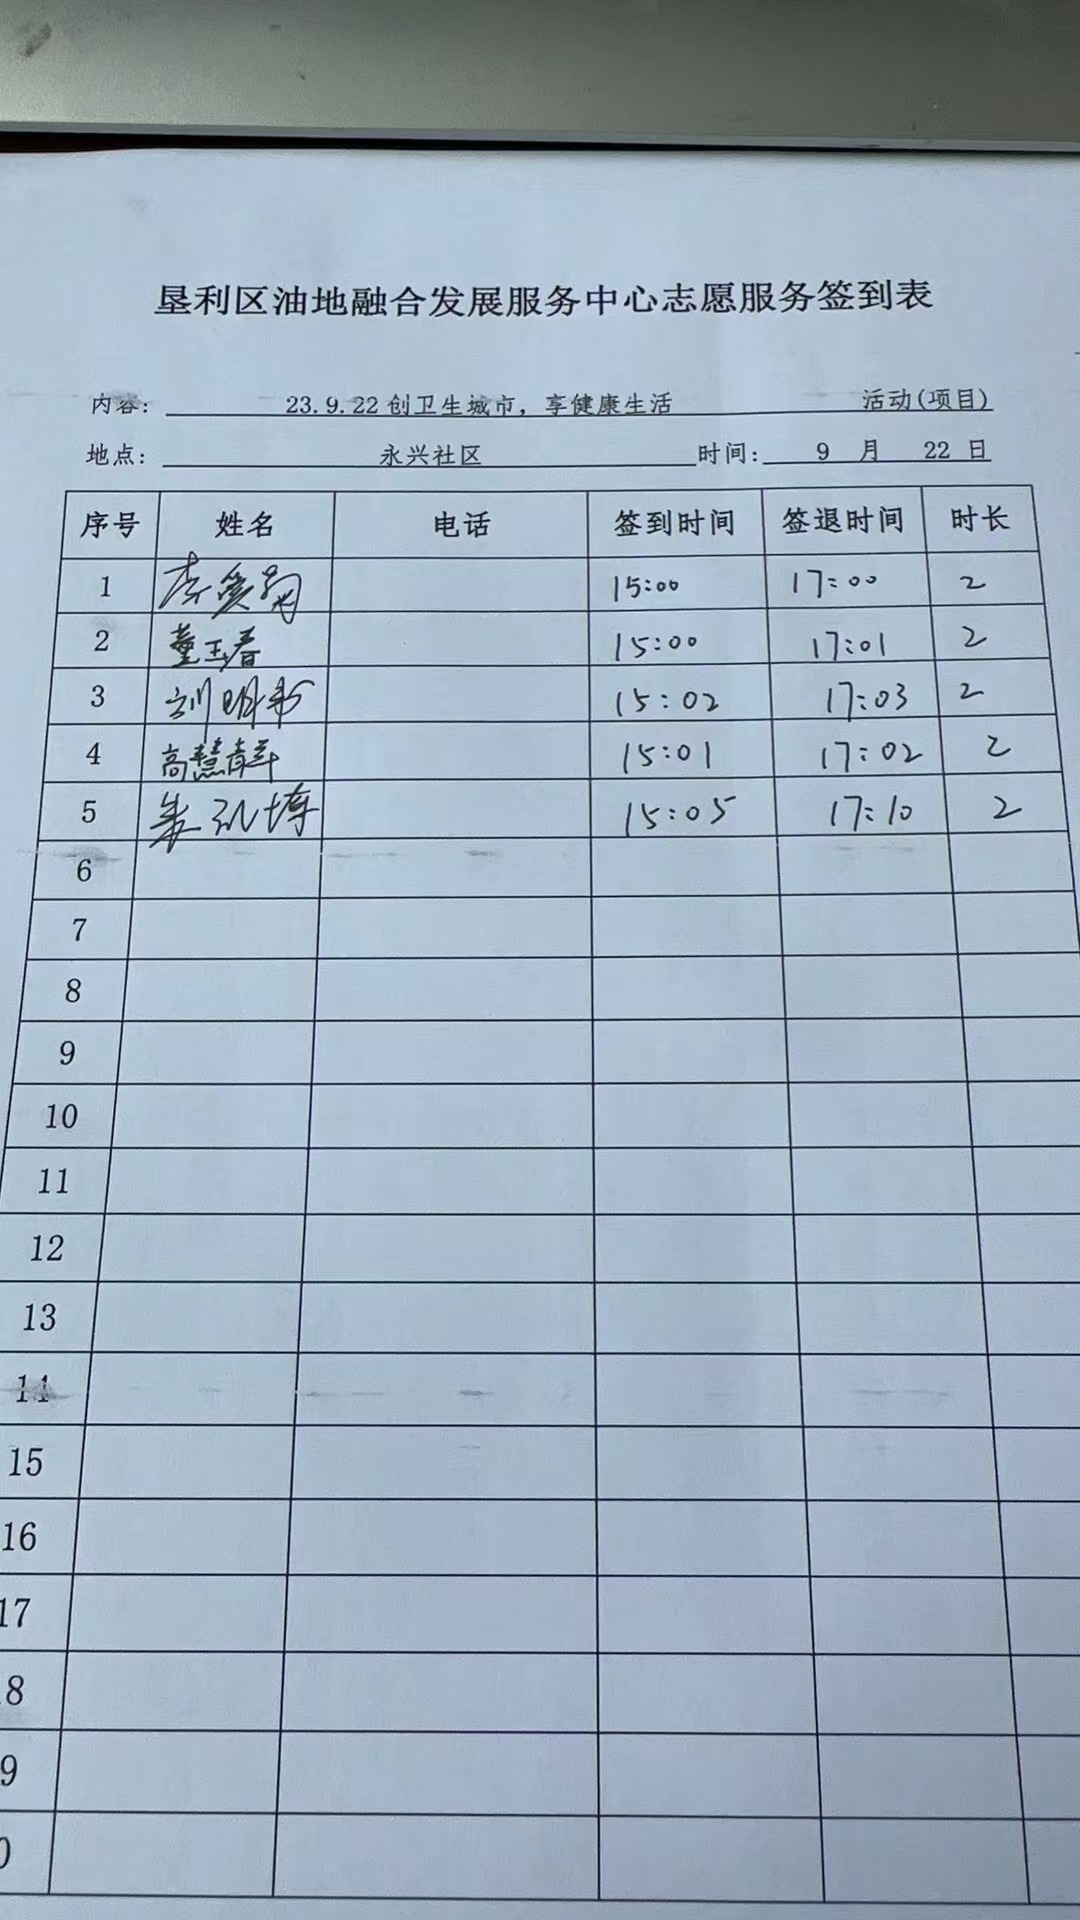 垦利区油地融合发展服务中心志愿服务签到表
内容： 23.9.22创卫生城市，享健康生活 活动(项目)
地点： 永兴社区 时间： 9 月 22 日
序号 姓名 电话 签到时间 签退时间 时长
1 李 15:00 17:00 2
2 董玉春 15:00 17:01 2
3 刘明 15:02 17:03 2
4 高慧 15:01 17:02 2
5 15:05 17:10 2
6
7
8
9
10
11
12
13
14
15
16
17
8
9
0